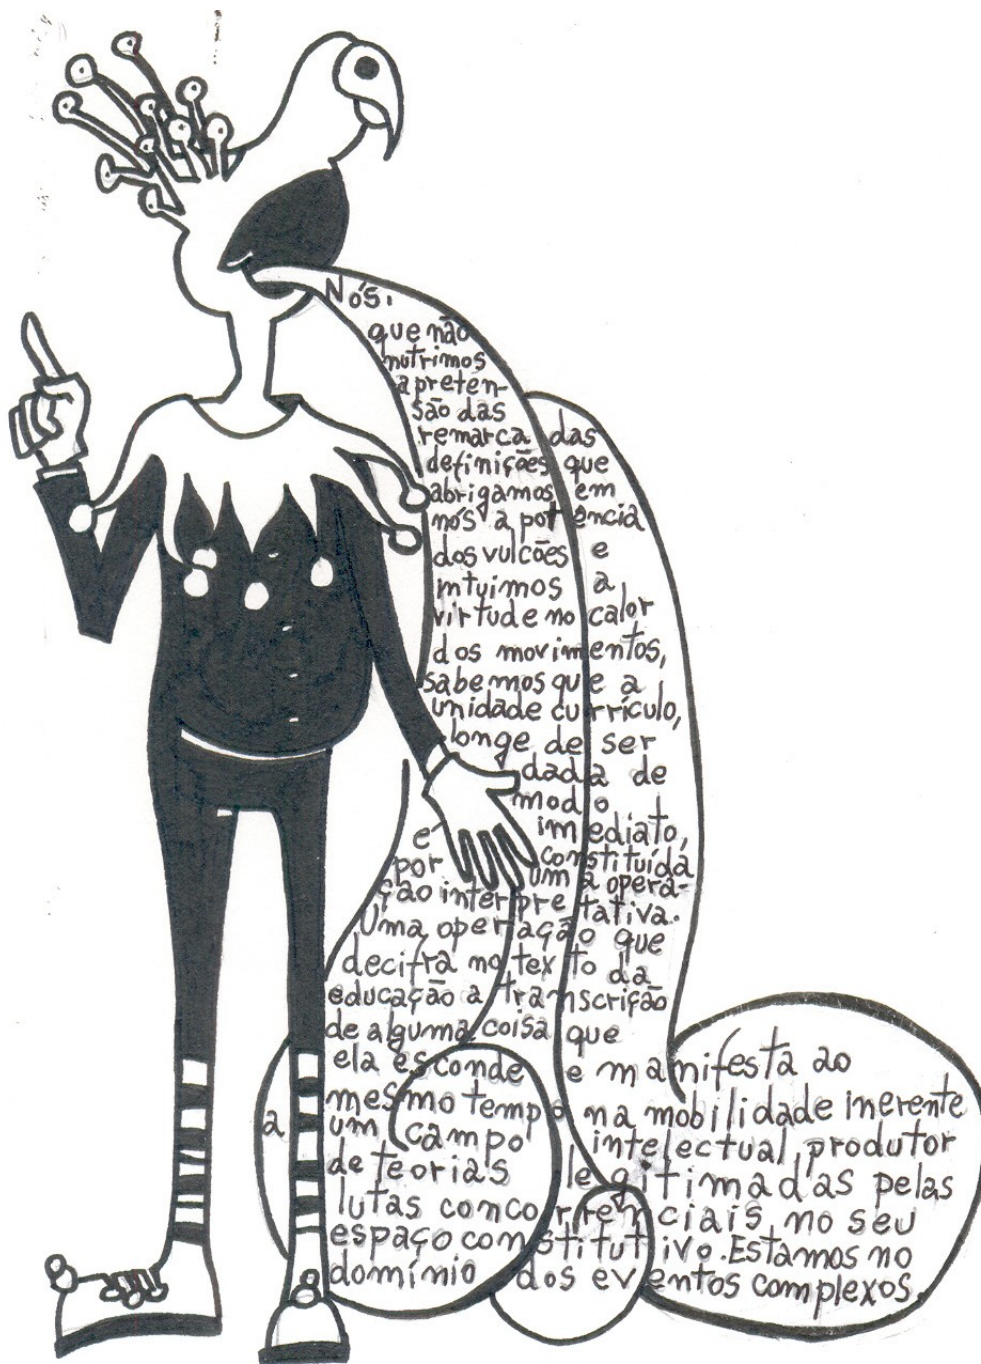 Nós.
que não
nutrimos
a preten-
são das
remarca das
definições que
abrigamos em
nós a potência
dos vulcões e
intuimos a
virtude no calor
dos movimentos,
sabemos que a
unidade currículo,
longe de ser
dada de
modo
imediato,
é constituída
por uma opera-
ção interpretativa.
Uma operação que
decifra no texto da
educação a transcrição
de alguma coisa que
ela esconde e manifesta ao
mesmo tempo na mobilidade inerente
a um campo intelectual, produtor
de teorias legitimadas pelas
lutas concorrenciais, no seu
espaço constitutivo. Estamos no
domínio dos eventos complexos.